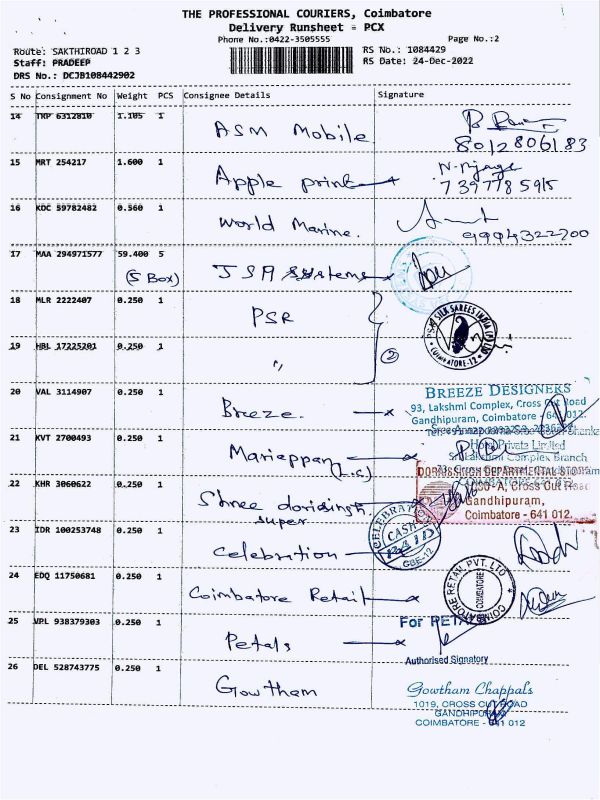 THE PROFESSIONAL COURIERS, Coimbatore
Delivery Runsheet - PCX
Phone No.:0422-3505555
Page No.:2
Route: SAKTHIROAD 1 2 3
RS No.: 1084429
Staff: PRADEEP
RS Date: 24-Dec-2022
DRS No.: DCJB108442902
S No Consignment No Weight PCS Consignee Details Signature
14 TRP 6312810 1.105 1 ASM Mobile
8012806183
15 MRT 254217 1.600 1 Apple print
7397785915
16 KDC 59782482 0.560 1 World Marine.
9994322700
17 MAA 294971577 59.400 5 JSA systems
(5 Box)
18 MLR 2222407 0.250 1 PSR
PSR SILK SAREES INDIA (P) LTD
COIMBATORE-12
19 HBL 17225201 0.250 1 "
2
20 VAL 3114907 0.250 1 Breeze.
BREEZE DESIGNERS
93, Lakshmi Complex, Cross Cut Road
Gandhipuram, Coimbatore - 641 012.
21 KVT 2700493 0.250 1 Mariappan
(L.C)
Hotel Private Limited
Sri Lakshmi Complex Branch
22 KHR 3060622 0.250 1 Shree
super
DEPARTMENTAL
Cross Cut Road
Gandhipuram,
Coimbatore - 641 012.
23 IDR 100253748 0.250 1 Celebration
CELEBRATION
CASH
CBE-12
24 EDQ 11750681 0.250 1 Coimbatore Retail
COIMBATORE RETAIL PVT. LTD
COIMBATORE
25 VPL 938379303 0.250 1 Petals
For PETALS
Authorised Signatory
26 DEL 528743775 0.250 1 Gowtham
Gowtham Chappals
1019, CROSS CUT ROAD
GANDHIPURAM
COIMBATORE - 641 012